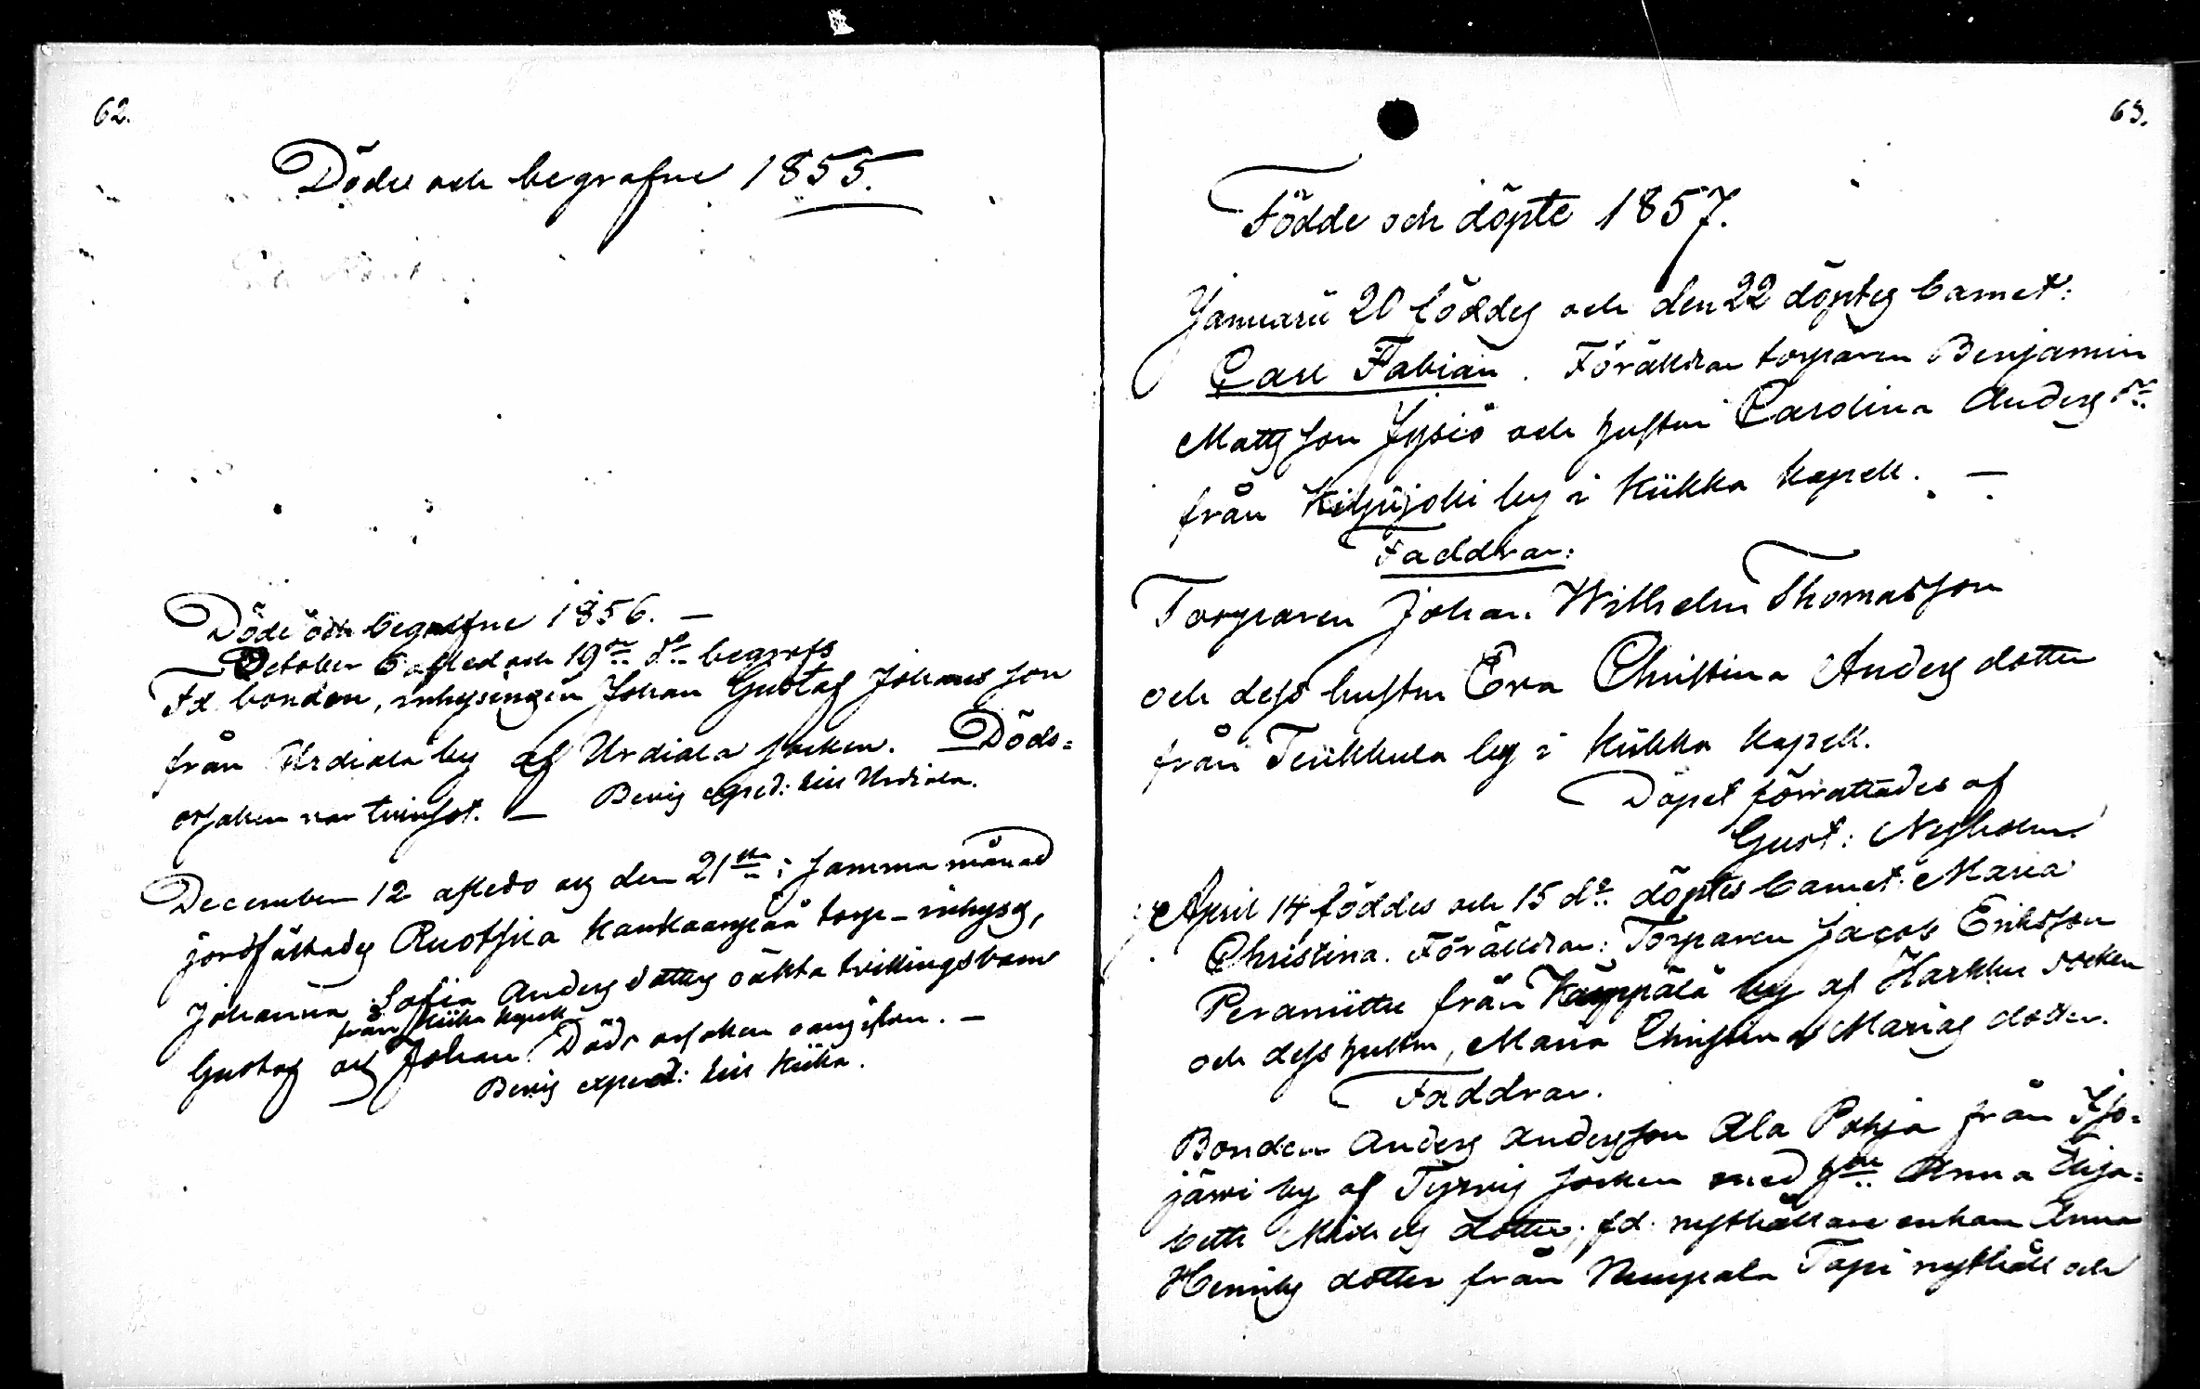 62.
Döde och begrafne 1855.
Döde och begrafne 1856. –
October 6 afled och 19de d:o begrofs
Fd. bonden, inhysingen Johan Gustaf Johansson
från Urdiala by af Urdiala socken. Döds=
orsaken var tvinsot. – Bevis exped: till Urdiala.
December 12 afledo och den 21ste i samma månad
jordfästades Ruotsila Kankaanpää torp-inhyses,
Johanna Sofia Anders dotters oäkta tvillingsbarn
från Kiika kapell
Gustaf och Johan. Döds orsaken okänd. –
Bevis exped: till Kiika.
63.
Födde och döpte 1857.
Januarii 20 föddes och den 22 döptes barnet:
Carl Fabian. Föräldrar torparen Benjamin
Mattsson Jysiö och hustru Carolina Anders dr
från Kilpijoki by i Kiikka kapell. –
Faddrar:
Torparen Johan Wilhelm Thomasson
och dess hustru Eva Christina Anders dotter
från Teukkula by i Kiikka kapell.
Dopet förrättades af
Gust: Nyholm.
April 14 föddes och 15 d:o döptes barnet: Maria
Christina. Föräldrar: Torparen Jacob Eriksson
Peramiittu från Karppälä by af Karkku socken
och dess hustru, Maria Christina Marias dotter.
Faddrar.
Bonden Anders Andersson Ala Pohja från Iso=
järwi by af Tyrvis socken med h:ru Anna Elisa=
beth Mickels dotter; fd. rusthållare enkan Anna
Henriks dotter från Nuupala Topi rusthåll och